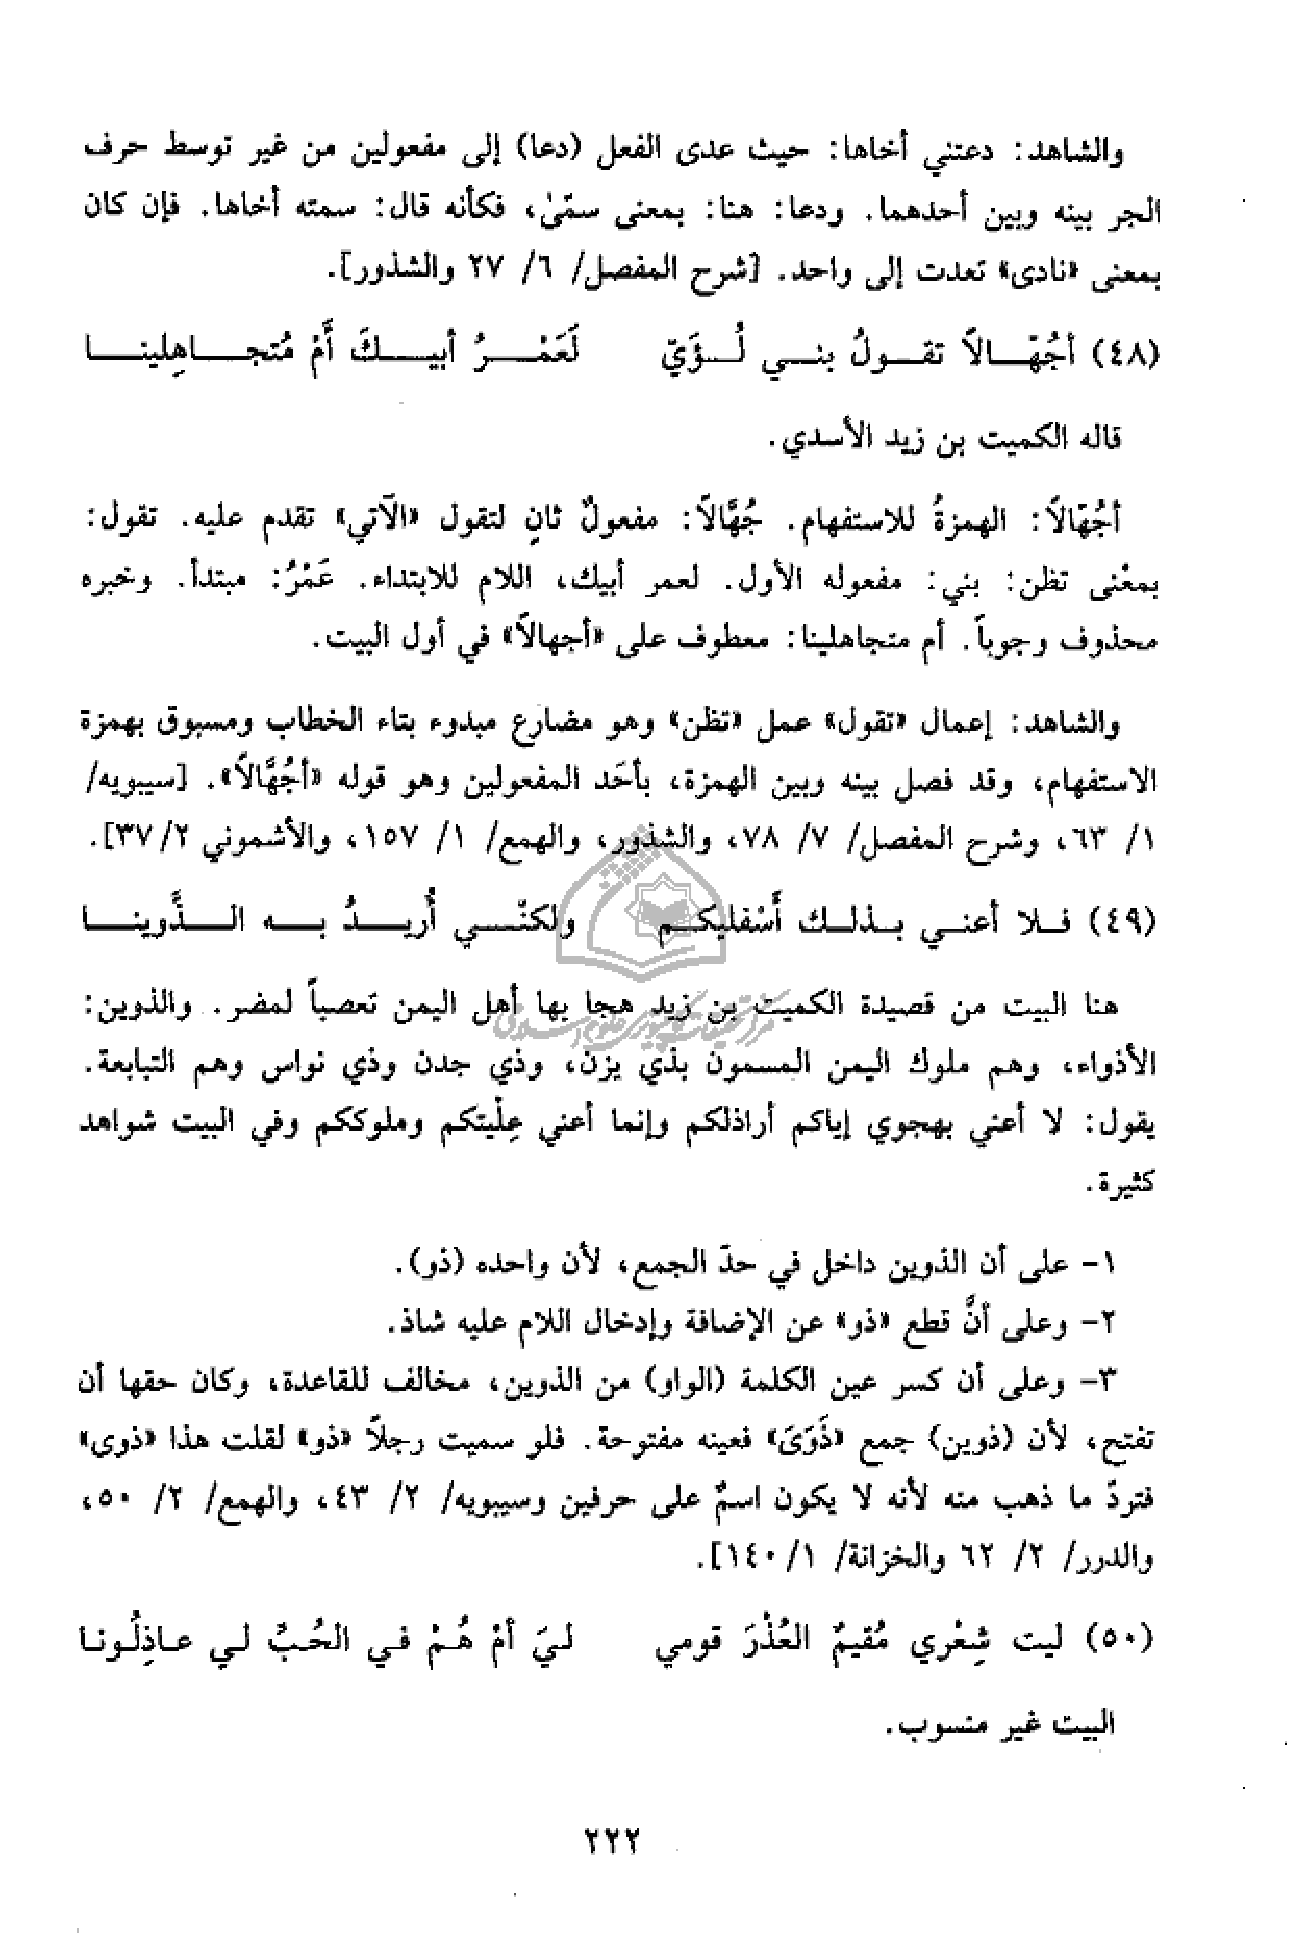 والشاهد: دعتني أخاها: حيث عدى الفعل (دعا) إلى مفعولين من غير توسط حرف
الجر بينه وبين أحدهما. ودعا: هنا: بمعنى سمّىٰ، فكأنه قال: سمته أخاها. فإن كان
بمعنى «نادى» تعدت إلى واحد. [شرح المفصل/ ٦/ ٢٧ والشذور].
(٤٨) أجُهّالاً تقولُ بني لُؤَيّ لَعَمْرُ أبيكَ أَمْ مُتجاهِلينا
قاله الكميت بن زيد الأسدي.
أجُهّالاً: الهمزةُ للاستفهام. جُهَّالاً: مفعولٌ ثانٍ لتقول «الآتي» تقدم عليه. تقول:
بمعْنى تظن: بني: مفعوله الأول. لعمر أبيك، اللام للابتداء. عَمْرُ: مبتدأ. وخبره
محذوف وجوباً. أم متجاهلينا: معطوف على «أجهالاً» في أول البيت.
والشاهد: إعمال «تقول» عمل «تظن» وهو مضارع مبدوء بتاء الخطاب ومسبوق بهمزة
الاستفهام، وقد فصل بينه وبين الهمزة، بأحَد المفعولين وهو قوله «أجُهَّالاً». [سيبويه/
١/ ٦٣، وشرح المفصل/ ٧/ ٧٨، والشذور، والهمع/ ١/ ١٥٧، والأشموني ٣٧/٢].
(٤٩) فلا أعني بذلك أَسْفليكم ولكنّي أُريدُ به الذَّوينا
هنا البيت من قصيدة الكميت بن زيد هجا بها أهل اليمن تعصباً لمضر. والذوين:
الأذواء، وهم ملوك اليمن المسمون بذي يزن، وذي جدن وذي نواس وهم التبابعة.
يقول: لا أعني بهجوي إياكم أراذلكم وإنما أعني عِلْيتكم وملوككم وفي البيت شواهد
كثيرة.
١- على أن الذوين داخل في حدّ الجمع، لأن واحده (ذو).
٢- وعلى أنَّ قطع «ذو» عن الإضافة وإدخال اللام عليه شاذ.
٣- وعلى أن كسر عين الكلمة (الواو) من الذوين، مخالف للقاعدة، وكان حقها أن
تفتح، لأن (ذوين) جمع «ذَوَىً» فعينه مفتوحة. فلو سميت رجلاً «ذو» لقلت هذا «ذوى»
فتردّ ما ذهب منه لأنه لا يكون اسمٌ على حرفين وسيبويه/ ٢/ ٤٣، والهمع/ ٢/ ٥٠،
والدرر/ ٢/ ٦٢ والخزانة/ ١/ ١٤٠].
(٥٠) ليت شِعْري مُقيمٌ العُذْرَ قومي ليَ أمْ هُمْ في الحُبِّ لي عاذِلُونا
البيت غير منسوب.
٢٢٢